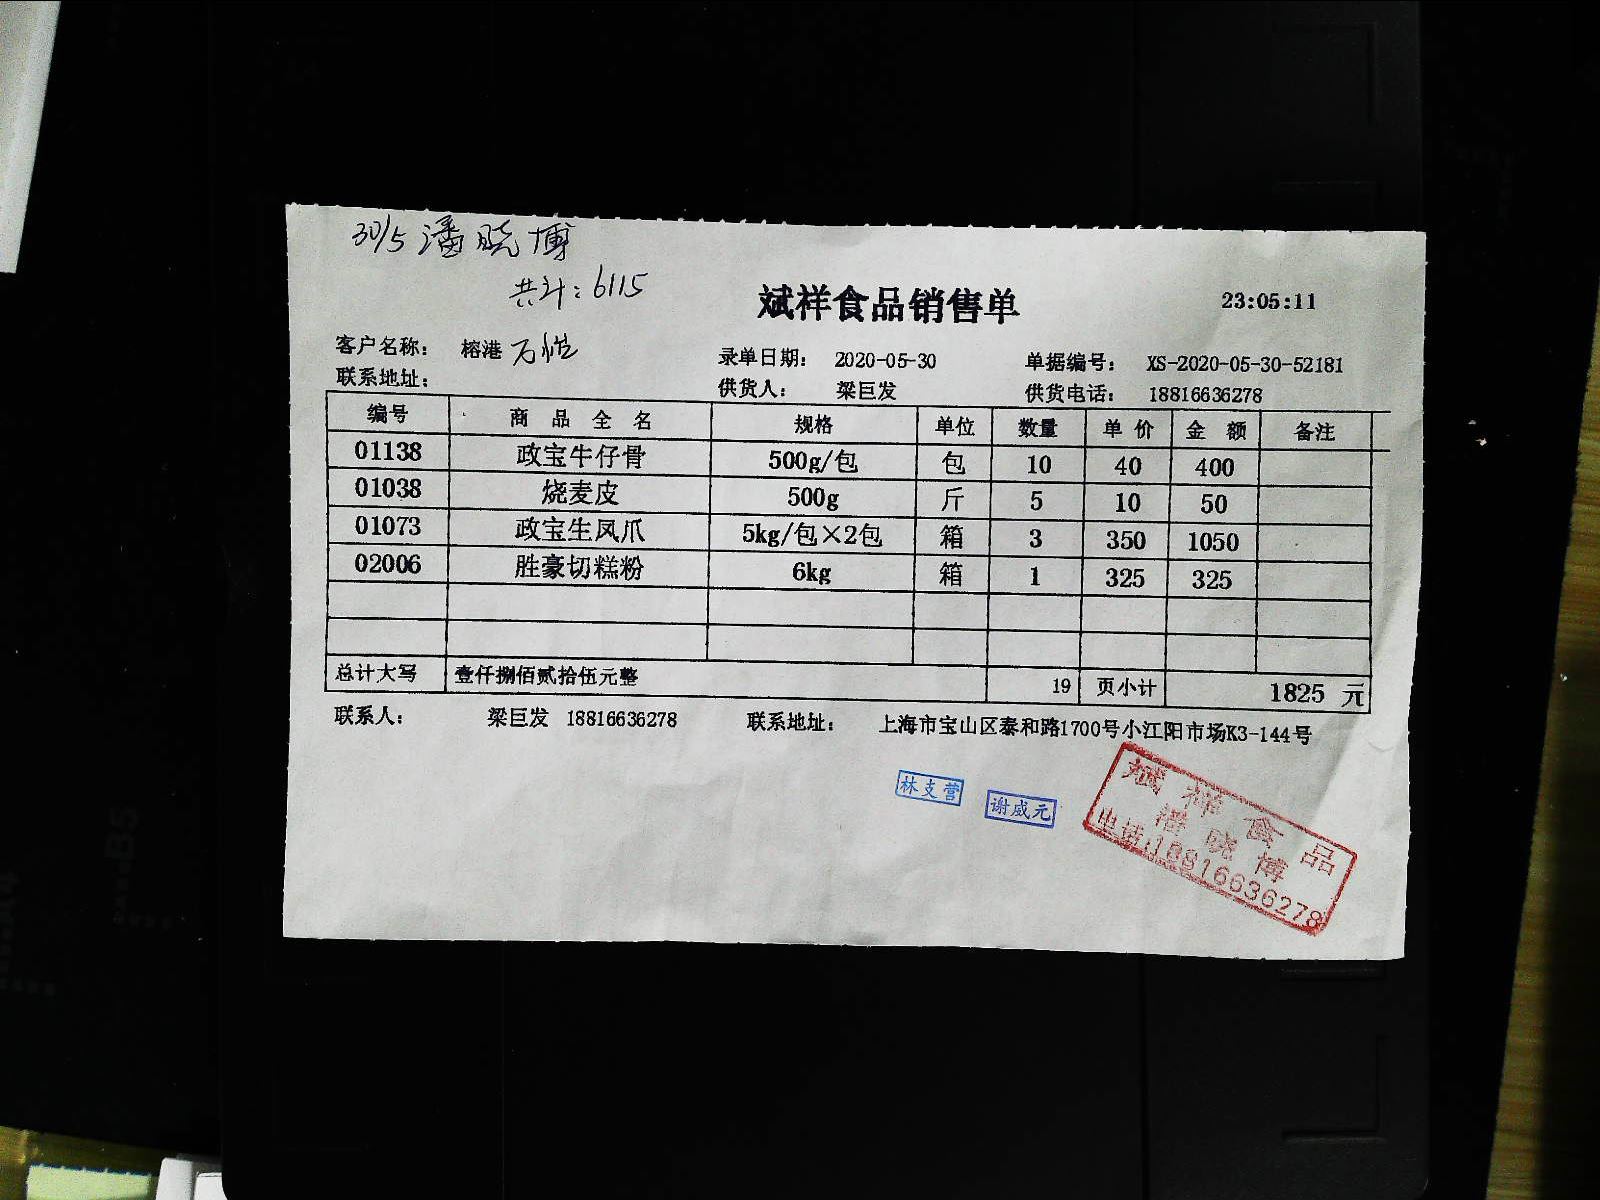 30/5 潘晓博
共计：6115
斌祥食品销售单 23:05:11
客户名称： 榕港 录单日期： 2020-05-30 单据编号： XS-2020-05-30-52181
联系地址： 供货人： 梁巨发 供货电话： 18816636278
编号 商品全名 规格 单位 数量 单价 金额 备注
01138 政宝牛仔骨 500g/包 包 10 40 400
01038 烧麦皮 500g 斤 5 10 50
01073 政宝生凤爪 5kg/包×2包 箱 3 350 1050
02006 胜豪切糕粉 6kg 箱 1 325 325
总计大写 壹仟捌佰贰拾伍元整 19 页小计 1825 元
联系人： 梁巨发 18816636278 联系地址： 上海市宝山区泰和路1700号小江阳市场K3-144号
林支营
谢威元
斌祥食品
潘晓博
电话:18816636278
B5